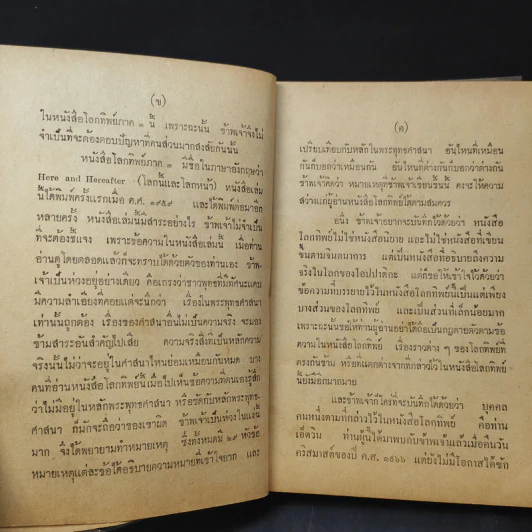 (ข)
ในหนังสือโลกทิพย์ภาค ๓ นี้ เพราะฉะนั้น ข้าพเจ้าจึงไม่
จำเป็นที่จะต้องตอบปัญหาที่คนส่วนมากสงสัยกันนั้น
หนังสือโลกทิพย์ภาค ๓ มีชื่อในภาษาอังกฤษว่า
Here and Hereafter (โลกนี้และโลกหน้า) หนังสือเล่ม
นี้ได้พิมพ์ครั้งแรกเมื่อ ค.ศ. ๑๙๕๙ และได้พิมพ์ต่อมาอีก
หลายครั้ง หนังสือเล่มนี้มีสาระอย่างไร ข้าพเจ้าไม่จำเป็น
ที่จะต้องชี้แจง เพราะข้อความในหนังสือเล่มนี้ เมื่อท่าน
อ่านดูโดยตลอดแล้วก็จะทราบได้ด้วยตัวของท่านเอง ข้าพ-
เจ้าเป็นห่วงอยู่อย่างเดียว คือเกรงว่าชาวพุทธที่มีทัศนะแคบ
มีความลำเอียงที่คอยแต่จะนึกว่า เรื่องในพระพุทธศาสนา
เท่านั้นถูกต้อง เรื่องของศาสนาอื่นไม่เป็นความจริง จะมอง
ข้ามสาระอันสำคัญไปเสีย ความจริงสิ่งที่เป็นหลักความ
จริงนั้นไม่ว่าจะอยู่ในศาสนาไหนย่อมเหมือนกันหมด บาง
คนที่อ่านหนังสือโลกทิพย์นี้เมื่อไปเห็นข้อความที่ตนเองรู้สึก
ว่าไม่มีอยู่ในหลักพระพุทธศาสนา หรือขัดกับหลักพระพุทธ-
ศาสนา ก็มักจะถือว่าของเขาผิด ข้าพเจ้าเป็นห่วงในแง่นี้
มาก จึงได้พยายามทำหมายเหตุ ซึ่งทั้งหมดมี ๒๙ หัวข้อ
หมายเหตุแต่ละข้อได้อธิบายความหมายที่เข้าใจยาก และ
(ค)
เปรียบเทียบกับหลักในพระพุทธศาสนา อันไหนที่เหมือน
กันก็บอกว่าเหมือนกัน อันไหนที่ต่างกันก็บอกว่าต่างกัน
ข้าพเจ้าคิดว่า หมายเหตุที่ข้าพเจ้าเขียนขึ้นนี้ คงจะให้ความ
สว่างแก่ผู้อ่านหนังสือโลกทิพย์ได้ตามสมควร
อนึ่ง ข้าพเจ้าอยากจะบันทึกไว้ด้วยว่า หนังสือ
โลกทิพย์ไม่ใช่หนังสือนิยาย และไม่ใช่หนังสือที่เขียน
ขึ้นตามจินตนาการ แต่เป็นหนังสือที่อธิบายถึงความ
จริงในโลกของโอปปาติกะ แต่ก็ขอให้เข้าใจไว้ด้วยว่า
ข้อความที่บรรยายไว้ในหนังสือโลกทิพย์นี้เป็นแต่เพียง
บางส่วนของโลกทิพย์ และเป็นส่วนที่เล็กน้อยมาก
เพราะฉะนั้นขอให้ท่านผู้อ่านอย่าได้ถือเป็นกฎตายตัวตามข้อ
ความในหนังสือโลกทิพย์ เรื่องราวต่าง ๆ ของโลกทิพย์ที่
ตรงกันข้าม หรือที่แตกต่างจากที่กล่าวไว้ในหนังสือโลกทิพย์
นี้ยังมีอีกมากมาย
และข้าพเจ้าก็ใคร่ที่จะบันทึกไว้ด้วยว่า บุคคล
คนหนึ่งตามที่กล่าวไว้ในหนังสือโลกทิพย์ คือท่าน
เอ็ดวิน ท่านผู้นี้ได้มาพบกับข้าพเจ้าแล้วเมื่อคืนวัน
คริสมาสต์ของปี ค.ศ. ๑๙๖๖ แต่ยังไม่มีโอกาสได้ซัก